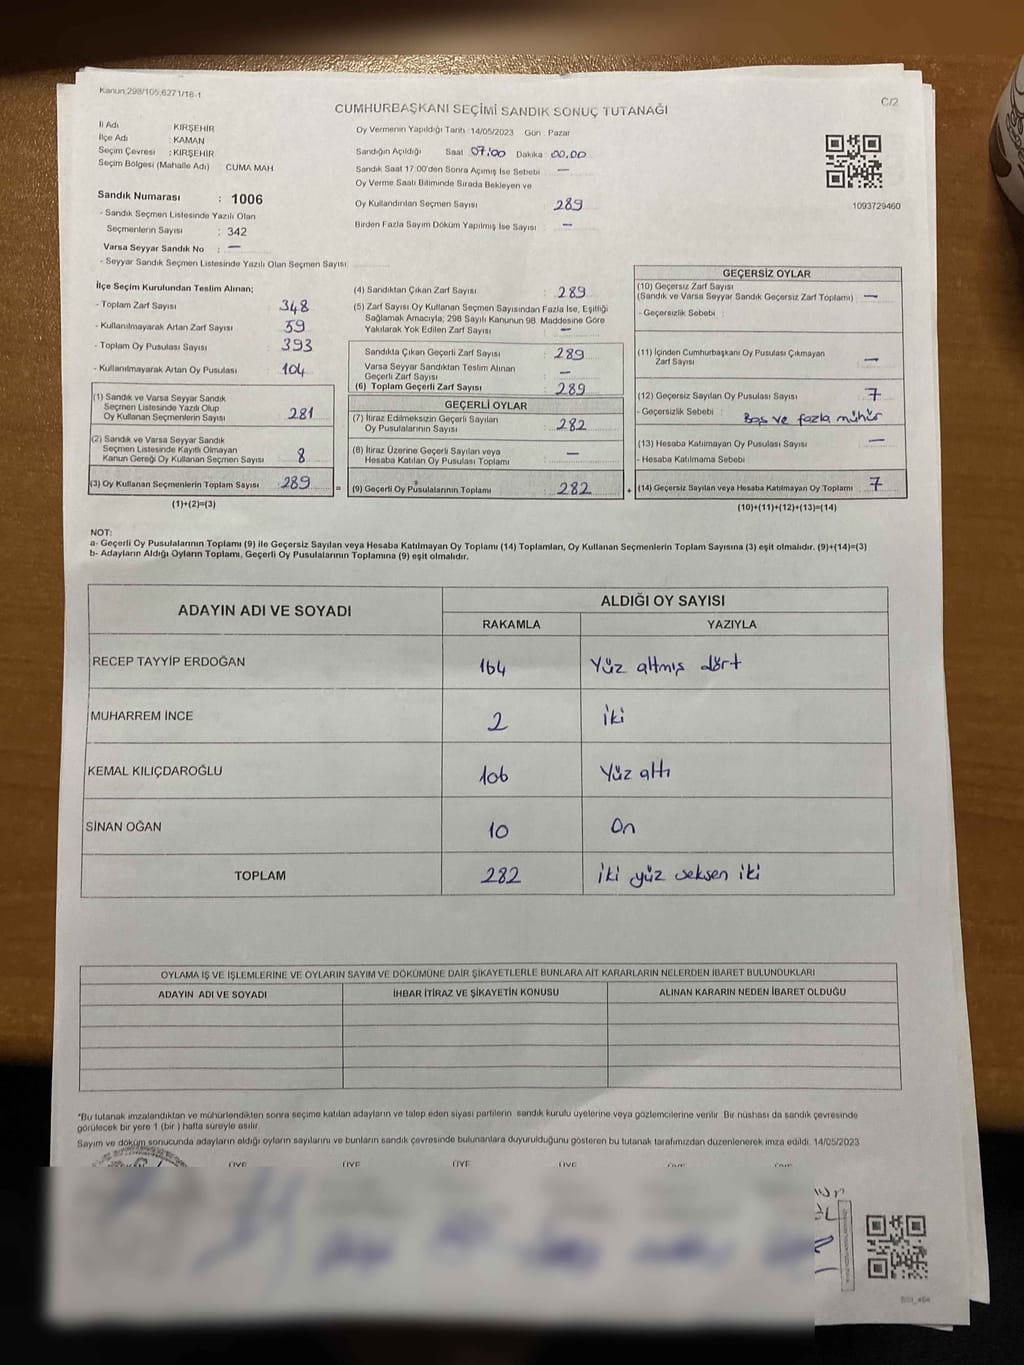 Kanun:298/105,6271/18-1
CUMHURBAŞKANI SEÇİMİ SANDIK SONUÇ TUTANAĞI
C/2
İli Adı : KIRŞEHİR
İlçe Adı : KAMAN
Seçim Çevresi : KIRŞEHİR
Seçim Bölgesi (Mahalle Adı) : CUMA MAH
Sandık Numarası : 1006
- Sandık Seçmen Listesinde Yazılı Olan
Seçmenlerin Sayısı : 342
Varsa Seyyar Sandık No : —
- Seyyar Sandık Seçmen Listesinde Yazılı Olan Seçmen Sayısı
Oy Vermenin Yapıldığı Tarih 14/05/2023 Gün : Pazar
Sandığın Açıldığı Saat 07:00 Dakika : 00.00
Sandık Saat 17:00'den Sonra Açımış İse Sebebi —
Oy Verme Saati Bitiminde Sırada Bekleyen ve
Oy Kullandırılan Seçmen Sayısı 289
Birden Fazla Sayım Döküm Yapılmış İse Sayısı : —
1093729460
İlçe Seçim Kurulundan Teslim Alınan;
- Toplam Zarf Sayısı : 348
- Kullanılmayarak Artan Zarf Sayısı : 59
- Toplam Oy Pusulası Sayısı : 393
- Kullanılmayarak Artan Oy Pusulası : 104
(1) Sandık ve Varsa Seyyar Sandık
Seçmen Listesinde Yazılı Olup
Oy Kullanan Seçmenlerin Sayısı : 281
(2) Sandık ve Varsa Seyyar Sandık
Seçmen Listesinde Kayıtlı Olmayan
Kanun Gereği Oy Kullanan Seçmen Sayısı : 8
(3) Oy Kullanan Seçmenlerin Toplam Sayısı : 289
(1)+(2)=(3)
(4) Sandıktan Çıkan Zarf Sayısı : 289
(5) Zarf Sayısı Oy Kullanan Seçmen Sayısından Fazla İse, Eşitliği
Sağlamak Amacıyla, 298 Sayılı Kanunun 98. Maddesine Göre
Yakılarak Yok Edilen Zarf Sayısı : —
Sandıkta Çıkan Geçerli Zarf Sayısı : 289
Varsa Seyyar Sandıktan Teslim Alınan
Geçerli Zarf Sayısı : —
(6) Toplam Geçerli Zarf Sayısı : 289
GEÇERLİ OYLAR
(7) İtiraz Edilmeksizin Geçerli Sayılan
Oy Pusulalarının Sayısı : 282
(8) İtiraz Üzerine Geçerli Sayılan veya
Hesaba Katılan Oy Pusulası Toplamı : —
= (9) Geçerli Oy Pusulalarının Toplamı : 282
GEÇERSİZ OYLAR
(10) Geçersiz Zarf Sayısı
(Sandık ve Varsa Seyyar Sandık Geçersiz Zarf Toplamı) : —
- Geçersizlik Sebebi :
(11) İçinden Cumhurbaşkanı Oy Pusulası Çıkmayan
Zarf Sayısı : —
(12) Geçersiz Sayılan Oy Pusulası Sayısı : 7
- Geçersizlik Sebebi : Boş ve fazla mühür
(13) Hesaba Katılmayan Oy Pusulası Sayısı : —
- Hesaba Katılmama Sebebi
+ (14) Geçersiz Sayılan veya Hesaba Katılmayan Oy Toplamı : 7
(10)+(11)+(12)+(13)=(14)
NOT:
a- Geçerli Oy Pusulalarının Toplamı (9) ile Geçersiz Sayılan veya Hesaba Katılmayan Oy Toplamı (14) Toplamları, Oy Kullanan Seçmenlerin Toplam Sayısına (3) eşit olmalıdır. (9)+(14)=(3)
b- Adayların Aldığı Oyların Toplamı, Geçerli Oy Pusulalarının Toplamına (9) eşit olmalıdır.
ADAYIN ADI VE SOYADI ALDIĞI OY SAYISI
RAKAMLA YAZIYLA
RECEP TAYYİP ERDOĞAN 164 Yüz altmış dört
MUHARREM İNCE 2 İki
KEMAL KILIÇDAROĞLU 106 Yüz altı
SİNAN OĞAN 10 On
TOPLAM 282 İki yüz seksen iki
OYLAMA İŞ VE İŞLEMLERİNE VE OYLARIN SAYIM VE DÖKÜMÜNE DAİR ŞİKAYETLERLE BUNLARA AİT KARARLARIN NELERDEN İBARET BULUNDUKLARI
ADAYIN ADI VE SOYADI İHBAR İTİRAZ VE ŞİKAYETİN KONUSU ALINAN KARARIN NEDEN İBARET OLDUĞU
*Bu tutanak imzalandıktan ve mühürlendikten sonra seçime katılan adayların ve talep eden siyasi partilerin sandık kurulu üyelerine veya gözlemcilerine verilir. Bir nüshası da sandık çevresinde
görülecek bir yere 1 (bir ) hafta süreyle asılır.
Sayım ve döküm sonucunda adayların aldığı oyların sayılarını ve bunların sandık çevresinde bulunanlara duyurulduğunu gösteren bu tutanak tarafımızdan düzenlenerek imza edildi. 14/05/2023
ÜYE ÜYE ÜYE ÜYE